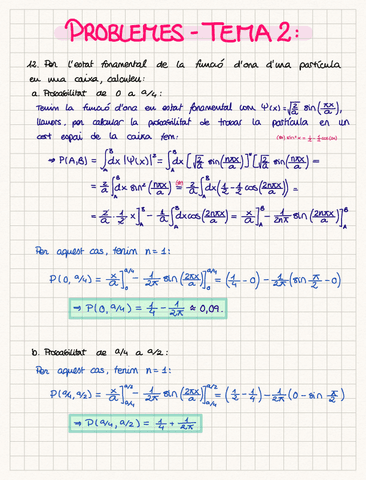 PROBLEMES - TEMA 2:
12. Per l'estat fonamental de la funció d'ona d'una partícula
en una caixa, calculeu:
a. Probabilitat de 0 a a/4:
Tenim la funció d'ona en estat fonamental com Ψ(x) = √(2/a) sin(πx/a),
llavors, per calcular la probabilitat de trobar la partícula en un
cert espai de la caixa fem:
(*) sin²x = 1/2 - 1/2 cos(2x)
→ P(A,B) = ∫_A^B dx |Ψ(x)|² = ∫_A^B dx [√(2/a) sin(nπx/a)]* [√(2/a) sin(nπx/a)] =
= 2/a ∫_A^B dx sin²(nπx/a) (*)= 2/a ∫_A^B dx (1/2 - 1/2 cos(2nπx/a)) =
= 2/a · 1/2 x]_A^B - 1/a ∫_A^B dx cos(2nπx/a) = x/a]_A^B - 1/2nπ sin(2nπx/a)]_A^B
Per aquest cas, tenim n = 1:
P(0, a/4) = x/a]_0^{a/4} - 1/2π sin(2πx/a)]_0^{a/4} = (1/4 - 0) - 1/2π (sin π/2 - 0)
⇒ P(0, a/4) = 1/4 - 1/2π ≈ 0,09.
b. Probabilitat de a/4 a a/2:
Per aquest cas, tenim n = 1:
P(a/4, a/2) = x/a]_{a/4}^{a/2} - 1/2π sin(2πx/a)]_{a/4}^{a/2} = (1/2 - 1/4) - 1/2π (0 - sin π/2)
⇒ P(a/4, a/2) = 1/4 + 1/2π